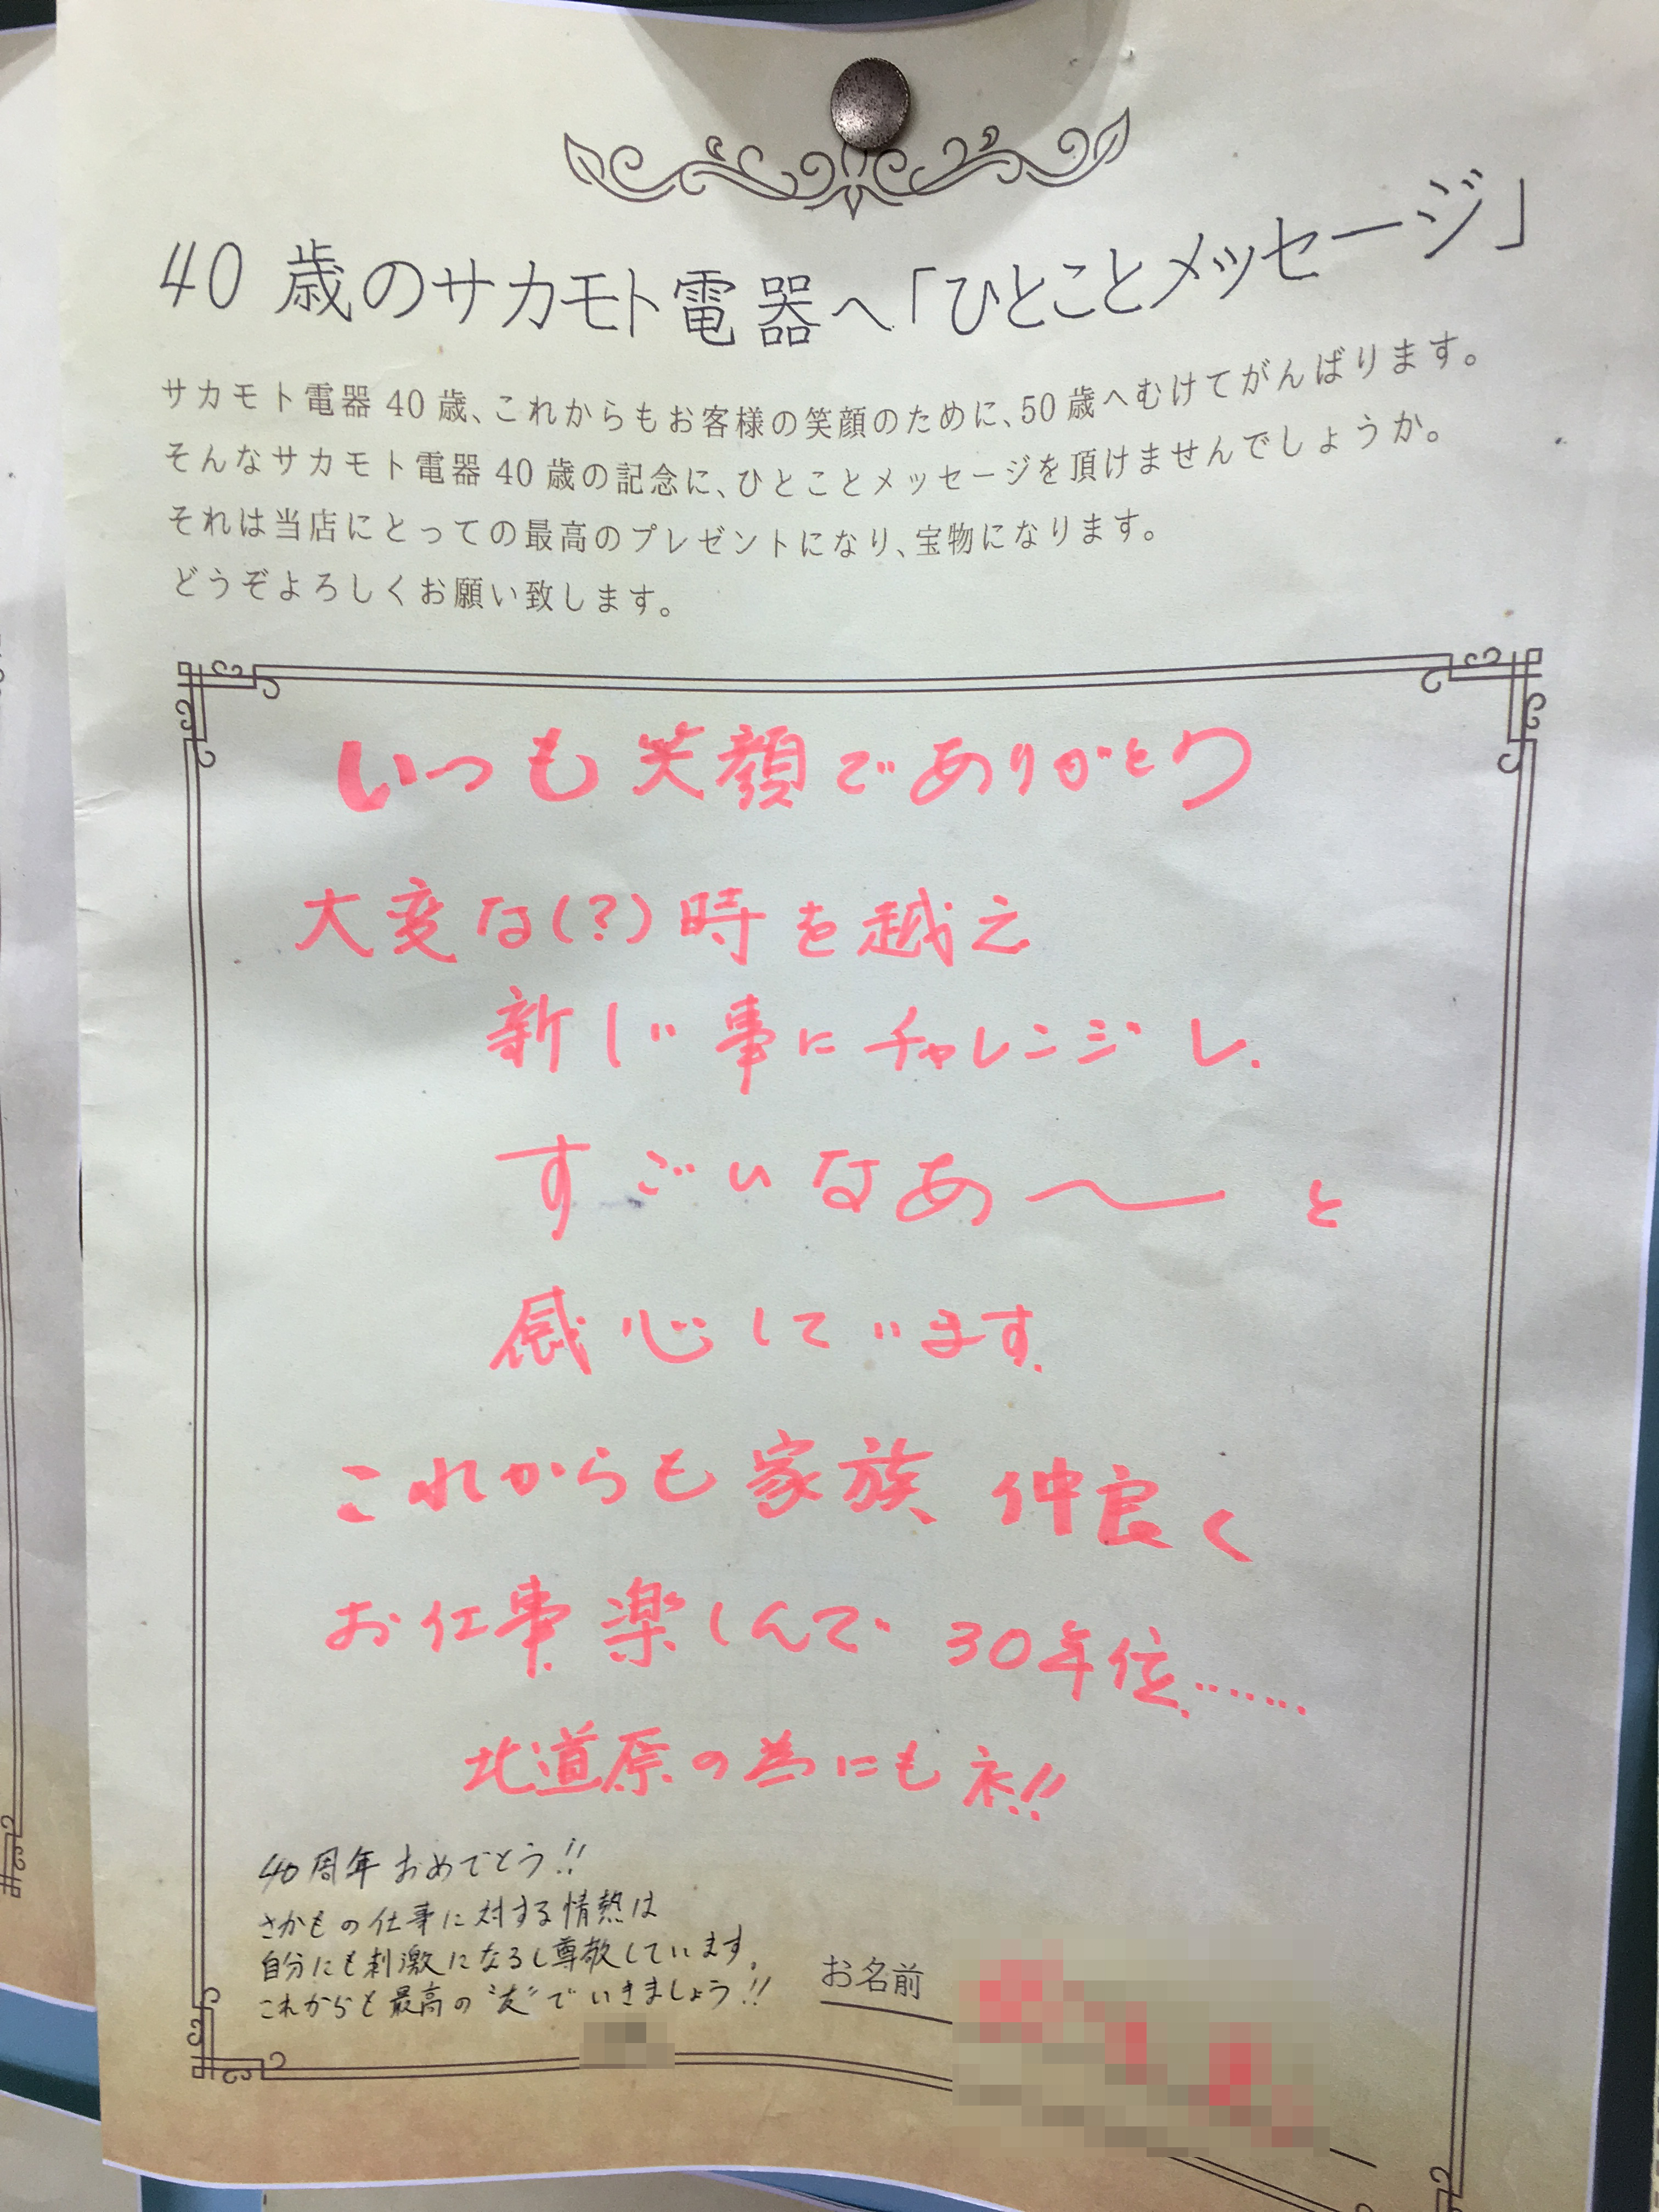 40歳のサカモト電器へ「ひとことメッセージ」
サカモト電器40歳、これからもお客様の笑顔のために、50歳へむけてがんばります。
そんなサカモト電器40歳の記念に、ひとことメッセージを頂けませんでしょうか。
それは当店にとっての最高のプレゼントになり、宝物になります。
どうぞよろしくお願い致します。
いつも笑顔でありがとう
大変な(?)時を越え
新しい事にチャレンジし、
すごいなあ〜と
感心しています。
これからも家族、仲良く
お仕事楽しんで30年位……
北道原の為にもネ!!
40周年おめでとう!!
さかもの仕事に対する情熱は
自分にも刺激になるし尊敬しています。
これからも最高の“友”でいきましょう!!
お名前